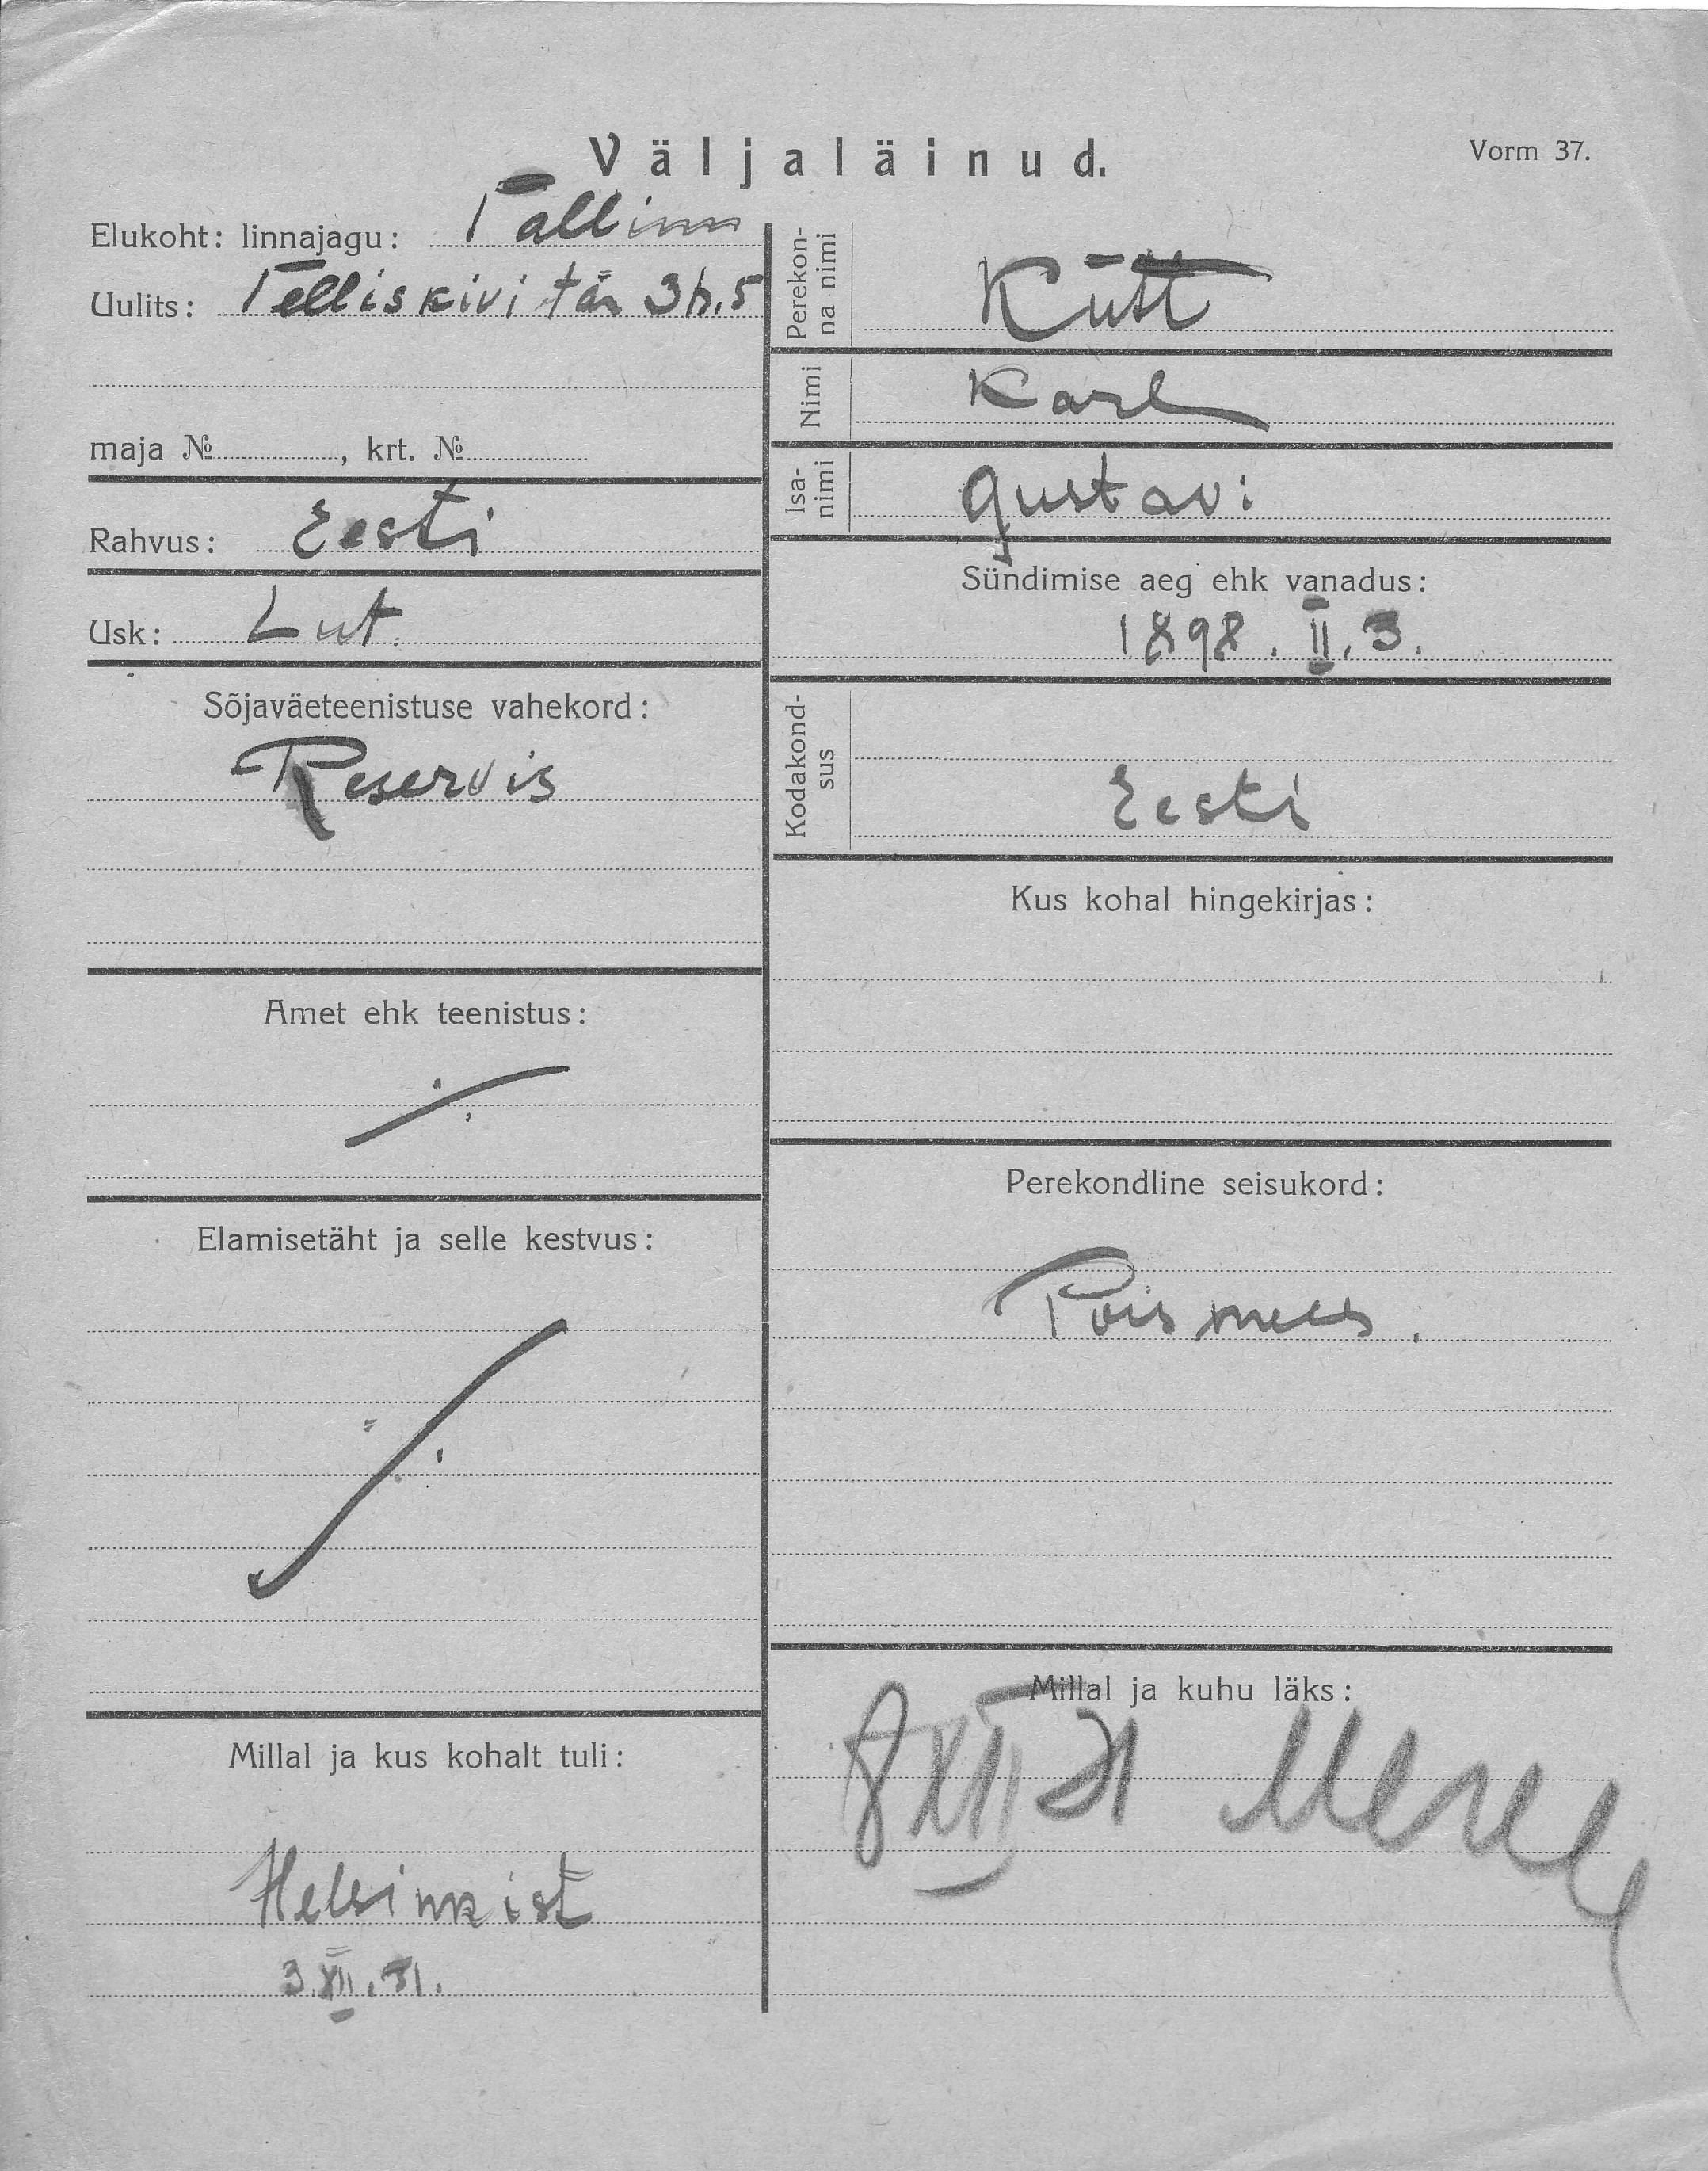 Väljaläinud.
Vorm 37.
Elukoht: linnajagu: Tallinn
Uulits: Telliskivi tän 3
maja № , krt. №
Rahvus: Eesti
Usk: Lut.
Sõjaväeteenistuse vahekord:
Reservis
Amet ehk teenistus:
Elamisetäht ja selle kestvus:
Millal ja kus kohalt tuli:
Helsinkist
3.XII.31.
Perekon-
na nimi
Kütt
Nimi
Karl
Isa-
nimi
Gustavi
Sündimise aeg ehk vanadus:
1898. II. 3.
Kodakond-
sus
Eesti
Kus kohal hingekirjas:
Perekondline seisukord:
Poismees.
Millal ja kuhu läks:
8 XII 31 Merele